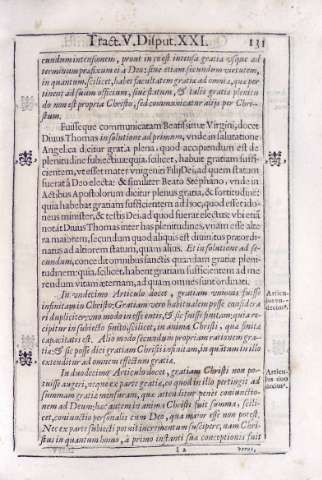 Tract. V. Disput. XXI. 131
cundum intensionem, prout in eo est intensa gratia vsque ad
terminum præfixum ei à Deo: siue etiam secundum virtutem,
in quantum, scilicet, habet facultatem gratia ad omnia, quæ per
tinent ad suum officium, siue statum, & talis gratiæ plenitu
do non est propria Christo, sed communicatur alijs per Chri-
stum.
Fuisseque communicatam Beatissimæ Virgini, docet
Diuus Thomas in solutione ad primum, vnde in salutatione
Angelica dicitur gratia plena, quod accipiendum est de
plenitudine subiectiua: quia, scilicet, habuit gratiam suffi-
cientem, vt esset mater vnigeniti Filij Dei, ad quem statum
fuerat à Deo electa: & similiter Beato Stephano, vnde in
Actibus Apostolorum dicitur plenus gratia, & fortitudine:
quia habebat gratiam sufficientem ad hoc, quod esset ido-
neus minister, & testis Dei ad quod fuerat electus: vbi etiã
notat Diuus Thomas inter has plenitudines, vnam esse alte
ra maiorem, secundum quod aliquis est diuinitus præordi-
natus ad altiorem statum, quàm alius. Et in solutione ad se-
cundum, concedit omnibus sanctis quandam gratiæ pleni-
tudinem: quia, scilicet, habent gratiam sufficientem ad me
rendum vitam æternam, ad quam omnes sunt ordinati.
In vndecimo Articulo docet, gratiam vnionis fuisse
infinitam in Christo: Gratiam verò habitualem posse considera
ri dupliciter: vno modo in esse entis, & sic fuisse finitam; quia re
cipitur in subiecto finito, scilicet, in anima Christi, quæ finita
capacitatis est. Alio modo secundum propriam rationem gra-
tiæ: & sic posse dici gratiam Christi infinitam, in quãtum in illo
extenditur ad omnem effectum gratiæ.
Articu-
lus vn-
decim9.
In duodecimo Articulo docet, gratiam Christi non po-
tuisse augeri, neque ex parte gratiæ, eo quod in illo pertingit ad
summam gratiæ mensuram, quæ attenditur penes coniunctio-
nem ad Deum: hæc autem in anima Christi fuit summa, scili-
cet, coniunctio personalis cum Deo, qua maior esse non potest.
Nec ex parte subiecti potuit incrementum suscipere, nam Chri-
stus in quantum homo, à primo instanti suæ conceptionis fuit
Articu-
lus duo
decim9.